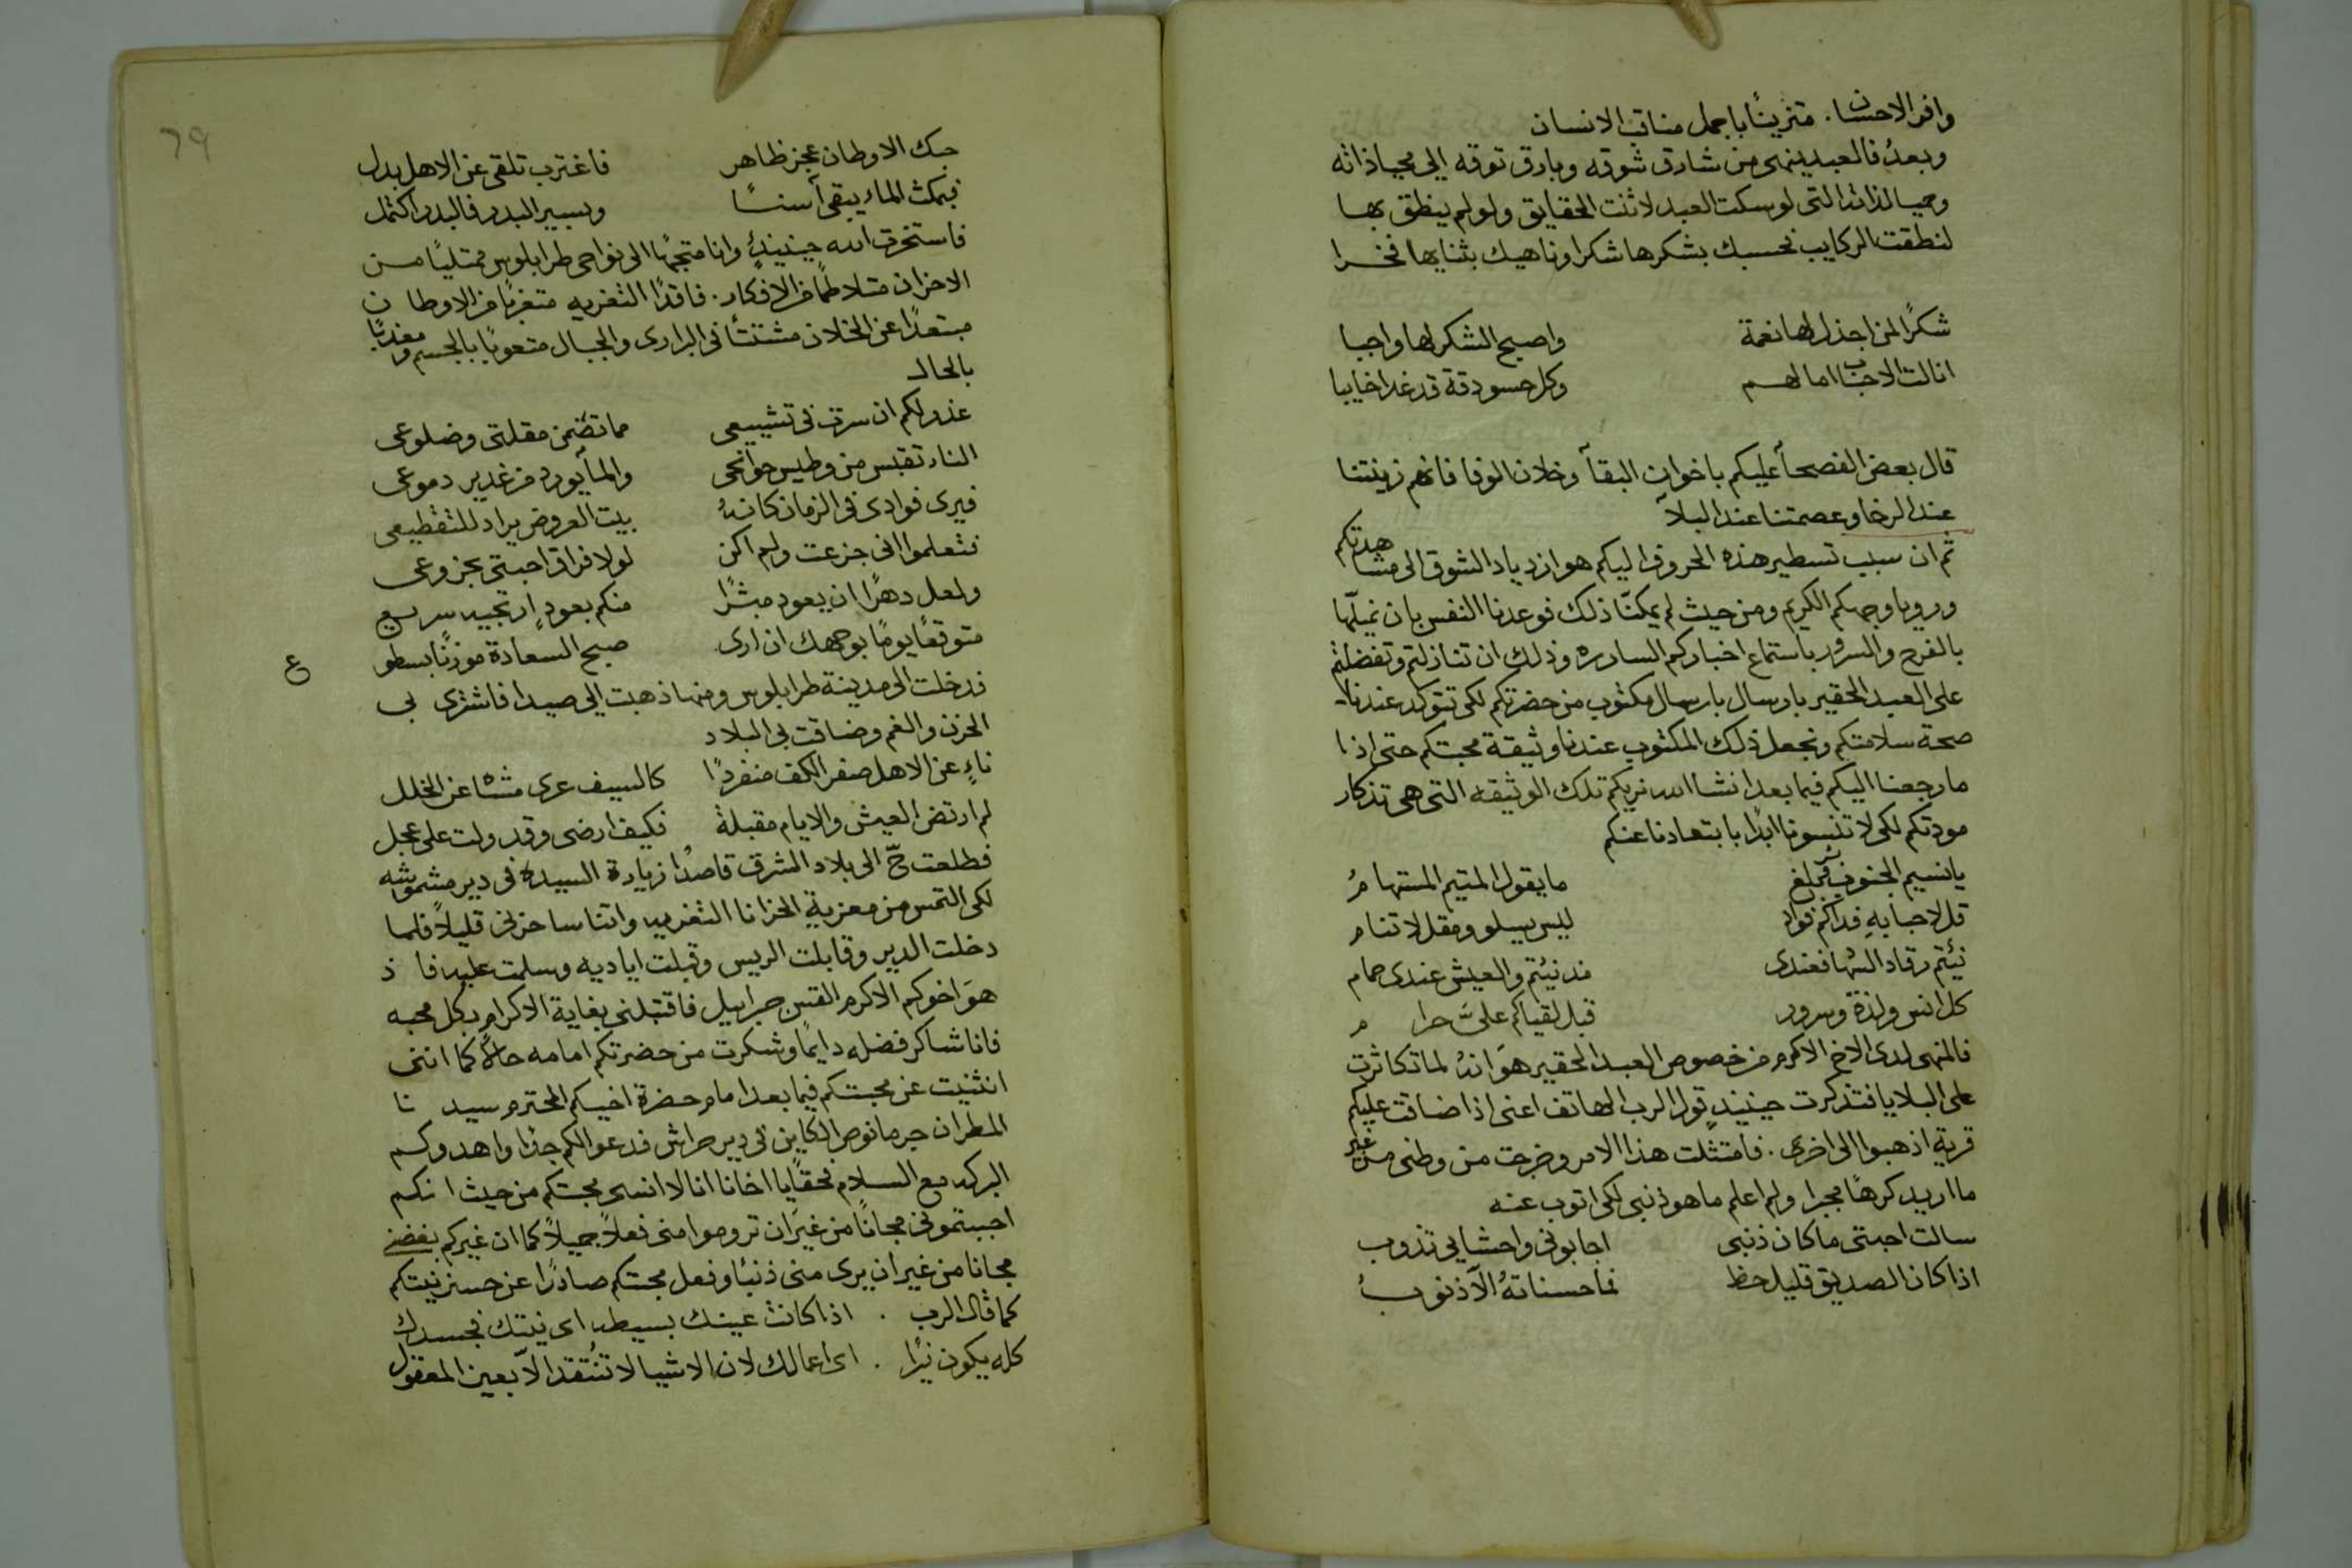 وافر الاحسان. متزينًا باجمل مناقب الانسان
وبعدُ فالعبد ينهى من شارق شوقه وبارق توقه الى محياذاته
وحميا لذاته التى لو سكت العبد لاثنت الحقايق ولو لم ينطق بها
لنطقت الركايب فحسبك بشكرها شكرا وناهيك بثنايها فخرا
شكرًا لمن اجذل لها نعمة واصبح الشكر لها واجبا
انالت الاحباب امالهم وكل حسود قد غدا خايبا
قال بعض الفصحاء عليكم باخوان البقآ وخلان الوفا فانهم زينتنا
عند الرخا وعصمتنا عند البلآ
ثم ان سبب تسطير هذه الحروف اليكم هو ازدياد الشوق الى مشاهدتكم
ورويا وجهكم الكريم ومن حيث لم يمكنّا ذلك فوعدنا النفس بان نميلّها
بالفرح والسرور باستماع اخباركم الساره وذلك ان تنازلتم وتفضلتم
على العبد الحقير بارسال بارسال مكتوب من حضرتكم لكى تتوكد عندنا
صحة سلامتكم ونجعل ذلك المكتوب عندنا وثيقة محبتكم حتى اذا
ما رجعنا اليكم فيما بعد انشا الله نريكم تلك الوثيقه التى هى تذكار
مودتكم لكى لا تنسونا ابدًا بابتعادنا عنكم
يا نسيم الجنوب بلغ ما يقول المتيم المستهامُ
قل لاحبابهِ فداكم فواد ليس يسلو ومقل لا تنام
نيتم رقاد السهّا فعندى مد نيتم والعيش عندى حمام
كل انس ولذة وسرور قبل لقياكم علىّ حرام
فالمنهى لدى الاخ الاكرم من خصوص العبد الحقير هوَ انهُ لما تكاثرت
على البلايا فتذكرت حينيذٍ قول الرب الهاتف اعنى اذا ضاقت عليكم
قرية اذهبوا الى اخرى. فامتثلت هذا الامر وخرجت من وطنى من غير
ما اريد كرهًا مجبرا ولم اعلم ما هو ذنبى لكى اتوب عنه
سالت احبتى ما كان ذنبى اجابونى واحشايى تذوب
اذا كان الصديق قليل حظ فما حسناتهُ الّا ذنوبُ
79
حبك الاوطان عجز ظاهر فاغترب تلقى عن الاهل بدل
فبمكث الماء يبقى آسنًا وبسير البدر فالبدر اكتمل
فاستخرت الله حينيذٍ وانا متجهًا الى نواحى طرابلوس ممتليًا من
الاحزان متلاطمًا من الافكار. فاقدًا التعزيه متغربًا من الاوطان
مبتعدًا عن الخلان مشتتًا فى البرارى والجبال متعوبًا بالجسم ومعذبًا
بالحال
عذر لكم ان سرت فى تشييعى مما تضمن مقلتى وضلوعى
النار تقبس من وطيس جوانحى والمآ يورد من غدير دموعى
فيرى فوادى فى الزمان كانهُ بيت العروض يراد للتقطيعى
فتعلموا انى جزعت ولم اكن لولا فراق احبتى بجزوعى
ولعل دهرًا ان يعود مبشرًا منكم بعودٍ سريع
متوقعًا يومًا بوجهك ان ارى صبح السعادة موزنًا بسطوع
فدخلت الى مدينة طرابلوس ومنها ذهبت الى صيدا فاشترى بى
الحزن والغم وضاقت بى البلاد
ناءٍ عن الاهل صفر الكف منفردًا كالسيف عرى متناه عن الخلل
لم ارتض العيش والايام مقبلة فكيف ارضى وقد ولت على عجل
فطلعت ح الى بلاد المشرق قاصدًا زيارة السيدة فى دير مشموشه
لكى التمس من معزية الحزانا التعزيه واتناسا حزنى قليلًا فلما
دخلت الدير وقابلت الريس وقبلت اياديه وسلمت عليه فاذ
هوَ اخوكم الاكرم القس جبراييل فاقتبلنى بغاية الاكرام بكل محبه
فانا شاكر فضله دايمًا وشكرت من حضرتكم امامه حالاً كما اننى
انثنيت عن محبتكم فيما بعد امام حضرة اخيكم المحترم سيدنا
المطران جرمانوس الكاين فى دير حراش فدعوا لكم جدًا واهدوكم
البركه مع السلام فحقًا يا اخانا انا لا انسى محبتكم من حيث انكم
احببتمونى مجانًا من غيَر ان تروموا منى فعلاً جميلاً كما ان غيركم بغضنى
مجانا من غير ان يرى منى ذنبًا وفعل محبتكم صادرًا عن حسن نيتكم
كما قال الرب . اذا كانت عينك بسيطه اى نيتك فجسدك
كله يكون نيرًا . اى اعمالك لان الاشيا لا تُنتقد الّا بعين العقول
ع